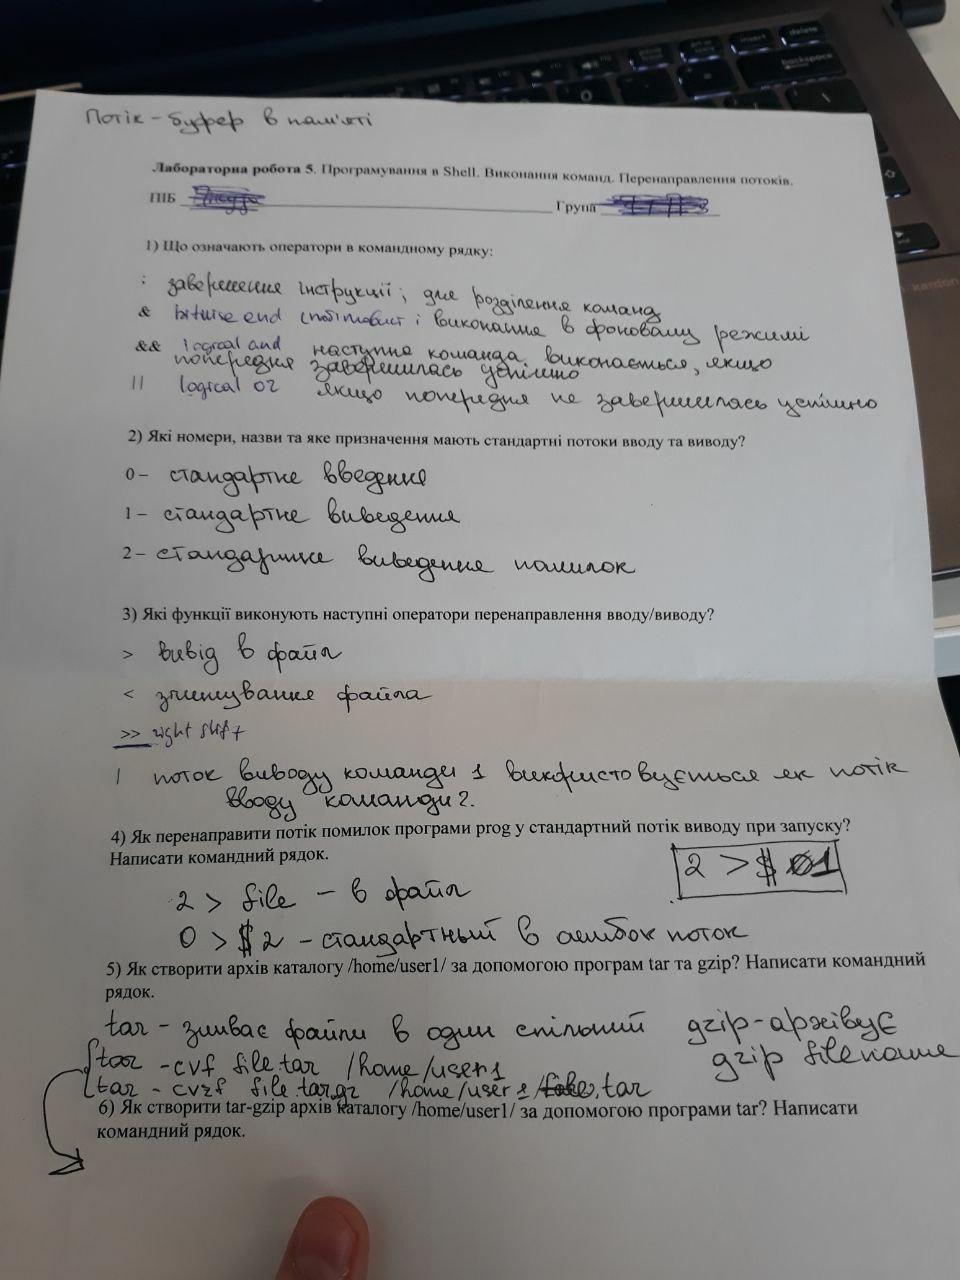 Потік - буфер в пам'яті
Лабораторна робота 5. Програмування в Shell. Виконання команд. Перенаправлення потоків.
ПІБ Група
1) Що означають оператори в командному рядку:
; завершення інструкції; для розділення команд
& bitwise end і виконання в фоновому режимі
&& logical and наступна команда виконається, якщо
попередня завершилась успішно
|| logical or якщо попередня не завершилась успішно
2) Які номери, назви та яке призначення мають стандартні потоки вводу та виводу?
0 – стандартне введення
1 – стандартне виведення
2 – стандартне виведення помилок
3) Які функції виконують наступні оператори перенаправлення вводу/виводу?
> вивід в файл
< зчитування файла
>> right shift
| поток виводу команди 1 використовується як потік
вводу команди 2.
4) Як перенаправити потік помилок програми prog у стандартний потік виводу при запуску?
Написати командний рядок.
2 > $ 1
2 > file - в файл
0 > $ 2 - стандартный в ошибок поток
5) Як створити архів каталогу /home/user1/ за допомогою програм tar та gzip? Написати командний
рядок.
tar - зливає файли в один спільний gzip - архівує
gzip filename
tar -cvf file.tar /home/user1
tar -cvzf file.tar.gz /home/user1/ .tar
6) Як створити tar-gzip архів каталогу /home/user1/ за допомогою програми tar? Написати
командний рядок.